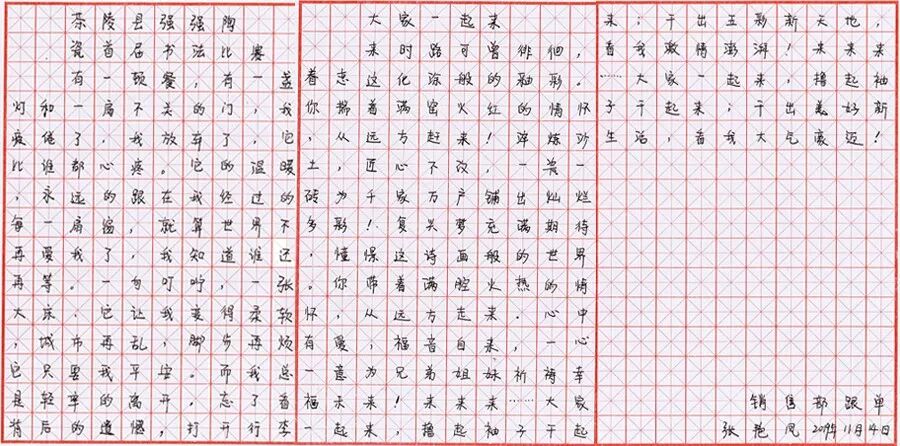 茶陵县强强陶
瓷首届书法比赛
有一顿餐，有一盏
灯和一扇不关的门，我
疲倦了，我放弃了，它
比谁都心疼。它的温暖
，永远的跟在我经过的
每一扇窗，就算世界不
再爱我了，我知道谁还
再等。一句叮咛，一张
大床．它让我变得柔软
，城市再乱，脚步再烦
它只要我平安。而我总
是轻率的离开，忘了看
背后的遗憾，打开行李
大家一起来
来时路可曾徘徊，
眷恋这化涤般的釉彩。
你揣着满窑火红的情怀
，从远方赶来！淬炼沙
土，匠心不改，一瓷一
砖为千家万户铺出灿烂
多彩！复兴梦充满期待
，憧憬这诗画般的世界
。你带着满腔火热的情
怀，从远方走来．心中
有爱，福音自来，一心
一意为兄弟姐妹祈祷幸
福未来！来来来……大家
一起来，撸起袖子干起
来；干出五彩新天地，
看我激情澎湃！来来来
……大家一起来，撸起袖
子干起来；干出美好新
生活，看我大气豪迈！
销售部跟单
张艳凤 2019年11月4日